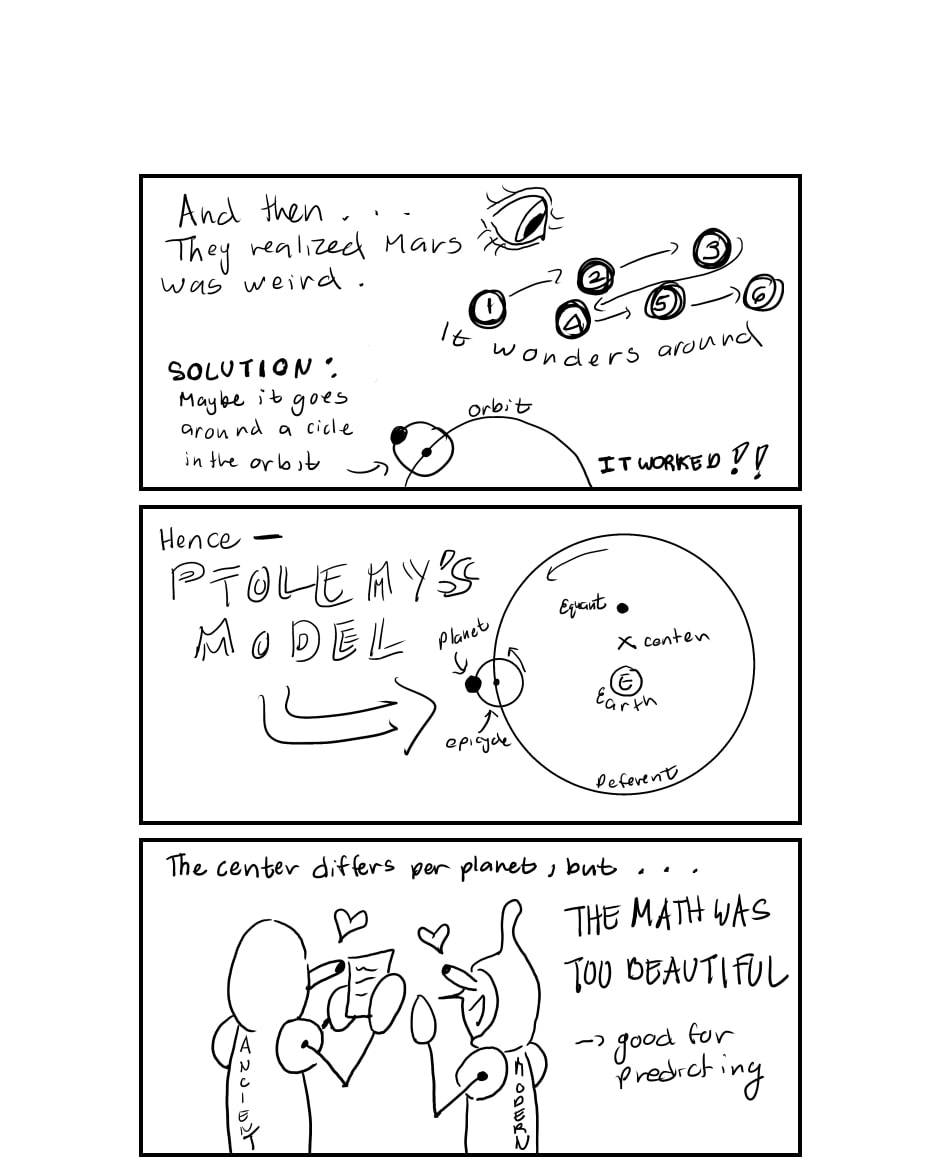 And then . . .
They realized Mars
was weird.
1
2
3
4
5
6
It wonders around
SOLUTION:
Maybe it goes
around a cicle
in the orbit
orbit
IT WORKED!!
Hence —
PTOLEMY'S
MODEL
Planet
epicycle
Equant
x centen
E
Earth
Deferent
The center differs per planet, but . . .
THE MATH WAS
TOO BEAUTIFUL
→ good for
predicting
ANCIENT
MODERN